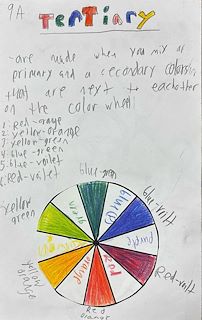 9A
Tertiary
-are made when you mix a
primary and a secondary colors
that are next to eachother
on the color wheel
1. Red-orange
2. yellow-orange
3. yellow-green
4. blue-green
5. blue-voilet
6. Red-voilet
blue-green
blue-voilt
Red-voilt
Red
orange
yellow
orange
yellow
green
green
purple
orange